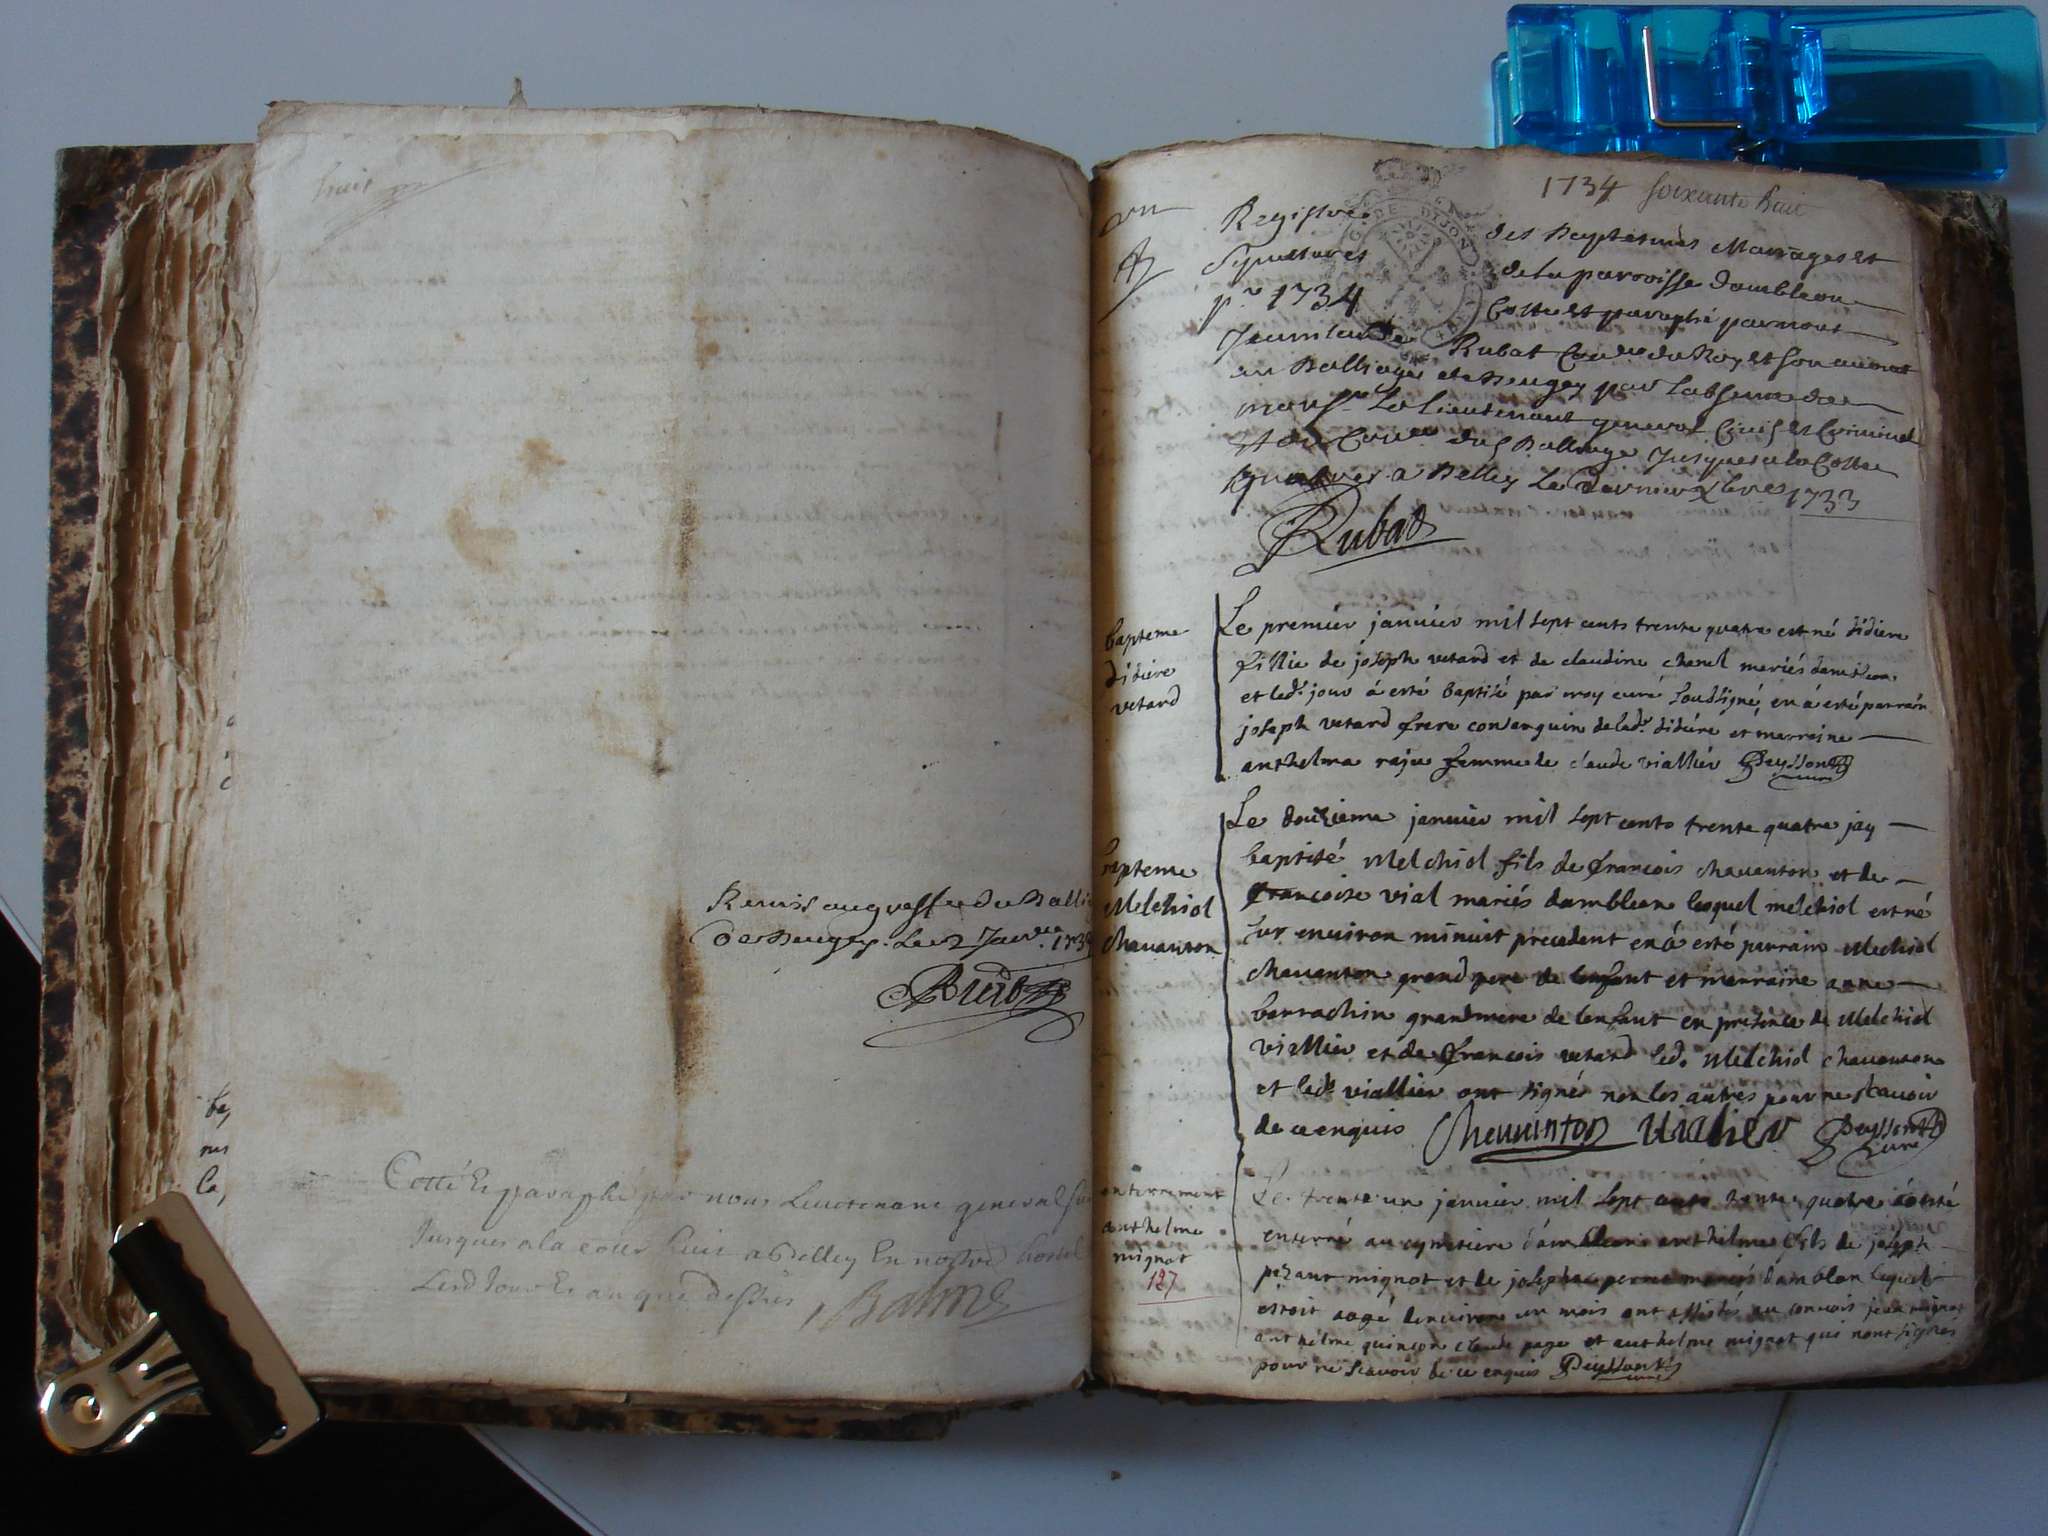 huit
Remis au greffe du Balli
de Beugey. Le 2 Janv.er 173
Cotté Et paraphé par nous Lieutenant general
Jusques a la cotte huit a Belley En nostre hostel
Lesd Jour Et an que dessus Balme
1734 soixante huit
un
Registre des Baptesmes Mariages et
Sepultures de la parroisse dambleon
pr 1734 Cotté et paraphé par nous
Jean Claude Rubat Con.er du Roy et son avocat
au Balliage de Beugey par labsence de
mons.r Le Lieutenant general Civil et Criminel
aud Balliage Jusques a la Cotte
a Belley Le dernier Xbre 1733
Rubat
G. DE DIJON
bapteme
didiere
vetard
Le premier janvier mil sept cents trente quatre est né didiere
fillie de joseph vetard et de claudine charel mariés dambleon
et led.t jour á esté baptisé par moy curé soussigné, en á esté parrain
joseph vetard frere consenguin de lad.te didiére et marraine
anthelma raju femme de claude viallier Peysson
curé
bapteme
Melchiol
chavanton
Le douzieme janvier mil sept cents trente quatre jay
baptisé Melchiol fils de francois chavanton et de
francoise vial mariés dambleon lequel melchiol est né
sur environ minuit precedent en á esté parrain Melchiol
chavanton grand pere de lenfant et marraine anne
barrachin grandmere de lenfant en presence de Melchiol
viallier et de francois vetard led. Melchiol chavanton
et led.t viallier ont signés non les autres pour ne scavoir
de ce enquis Chavanton Vialier Peysson
curé
enterrement
anthelme
mignot
127
Le trente un janvier mil sept cents trente quatre á esté
enterré au cymetiere dambleon anthelme fils de joseph
pezant mignot et de josephe perne mariés dambleon lequel
estoit aagé denviron un mois ont assistés au convois jean mignot
anthelme quinson claude page et anthelme mignot qui nont signés
pour ne scavoir de ce enquis Peysson
curé